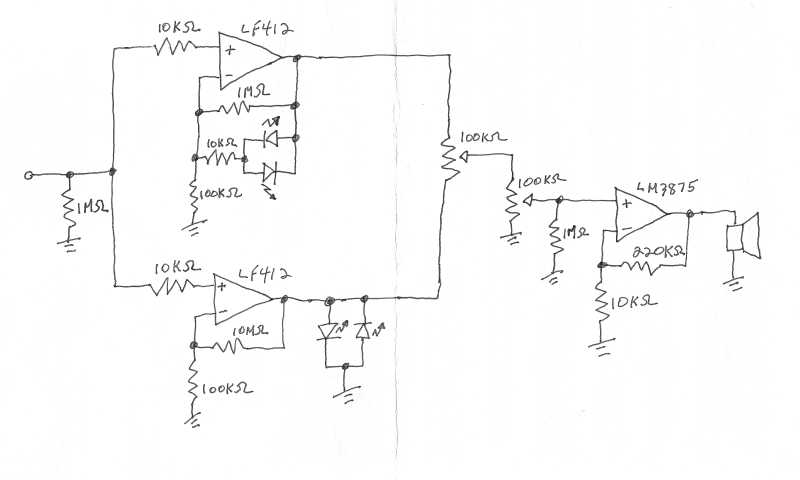 10KΩ
LF412
+
−
1MΩ
10KΩ
100KΩ
1MΩ
100KΩ
100KΩ
LM3875
+
−
1MΩ
220KΩ
10KΩ
10KΩ
LF412
+
−
10MΩ
100KΩ